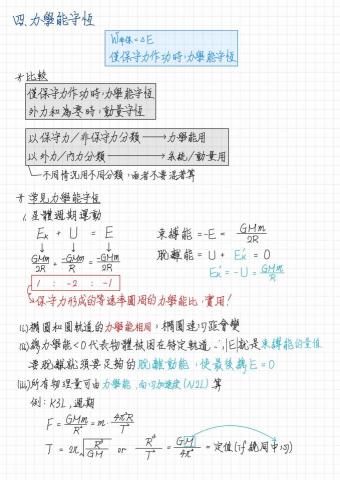 四、力學能守恆
W非保 = ΔE
僅保守力作功時,力學能守恆
* 比較
僅保守力作功時,力學能守恆
外力和為零時,動量守恆
以保守力/非保守力分類 → 力學能用
以外力/內力分類 → 系統/動量用
不同情況用不同分類,兩者不要混著算
* 常見力學能守恆
1. 星體週期運動
Ek + U = E
↓ ↓ ↓
GMm/2R + -GMm/R = -GMm/2R
1 : -2 : -1
束縛能 = -E = GMm/2R
脫離能 = U + Ek' = 0
Ek' = -U = GMm/R
保守力形成的等速率圓周的力學能比,實用!
(i) 橢圓和圓軌道的力學能相同,橢圓速v可能會變
(ii) 總力學能<0代表物體被困在特定軌道 ∴|E|就是束縛能的量值
要脫離就須要足夠的脫離動能,使最後總E=0
(iii) 所有物理量可由力學能、向心加速度(N2L)算
例:K3L,週期
F = GMm/R² = m · 4π²R/T²
T = 2π√(R³/GM) or R³/T² = GM/4π² = 定值(if 繞同中心)